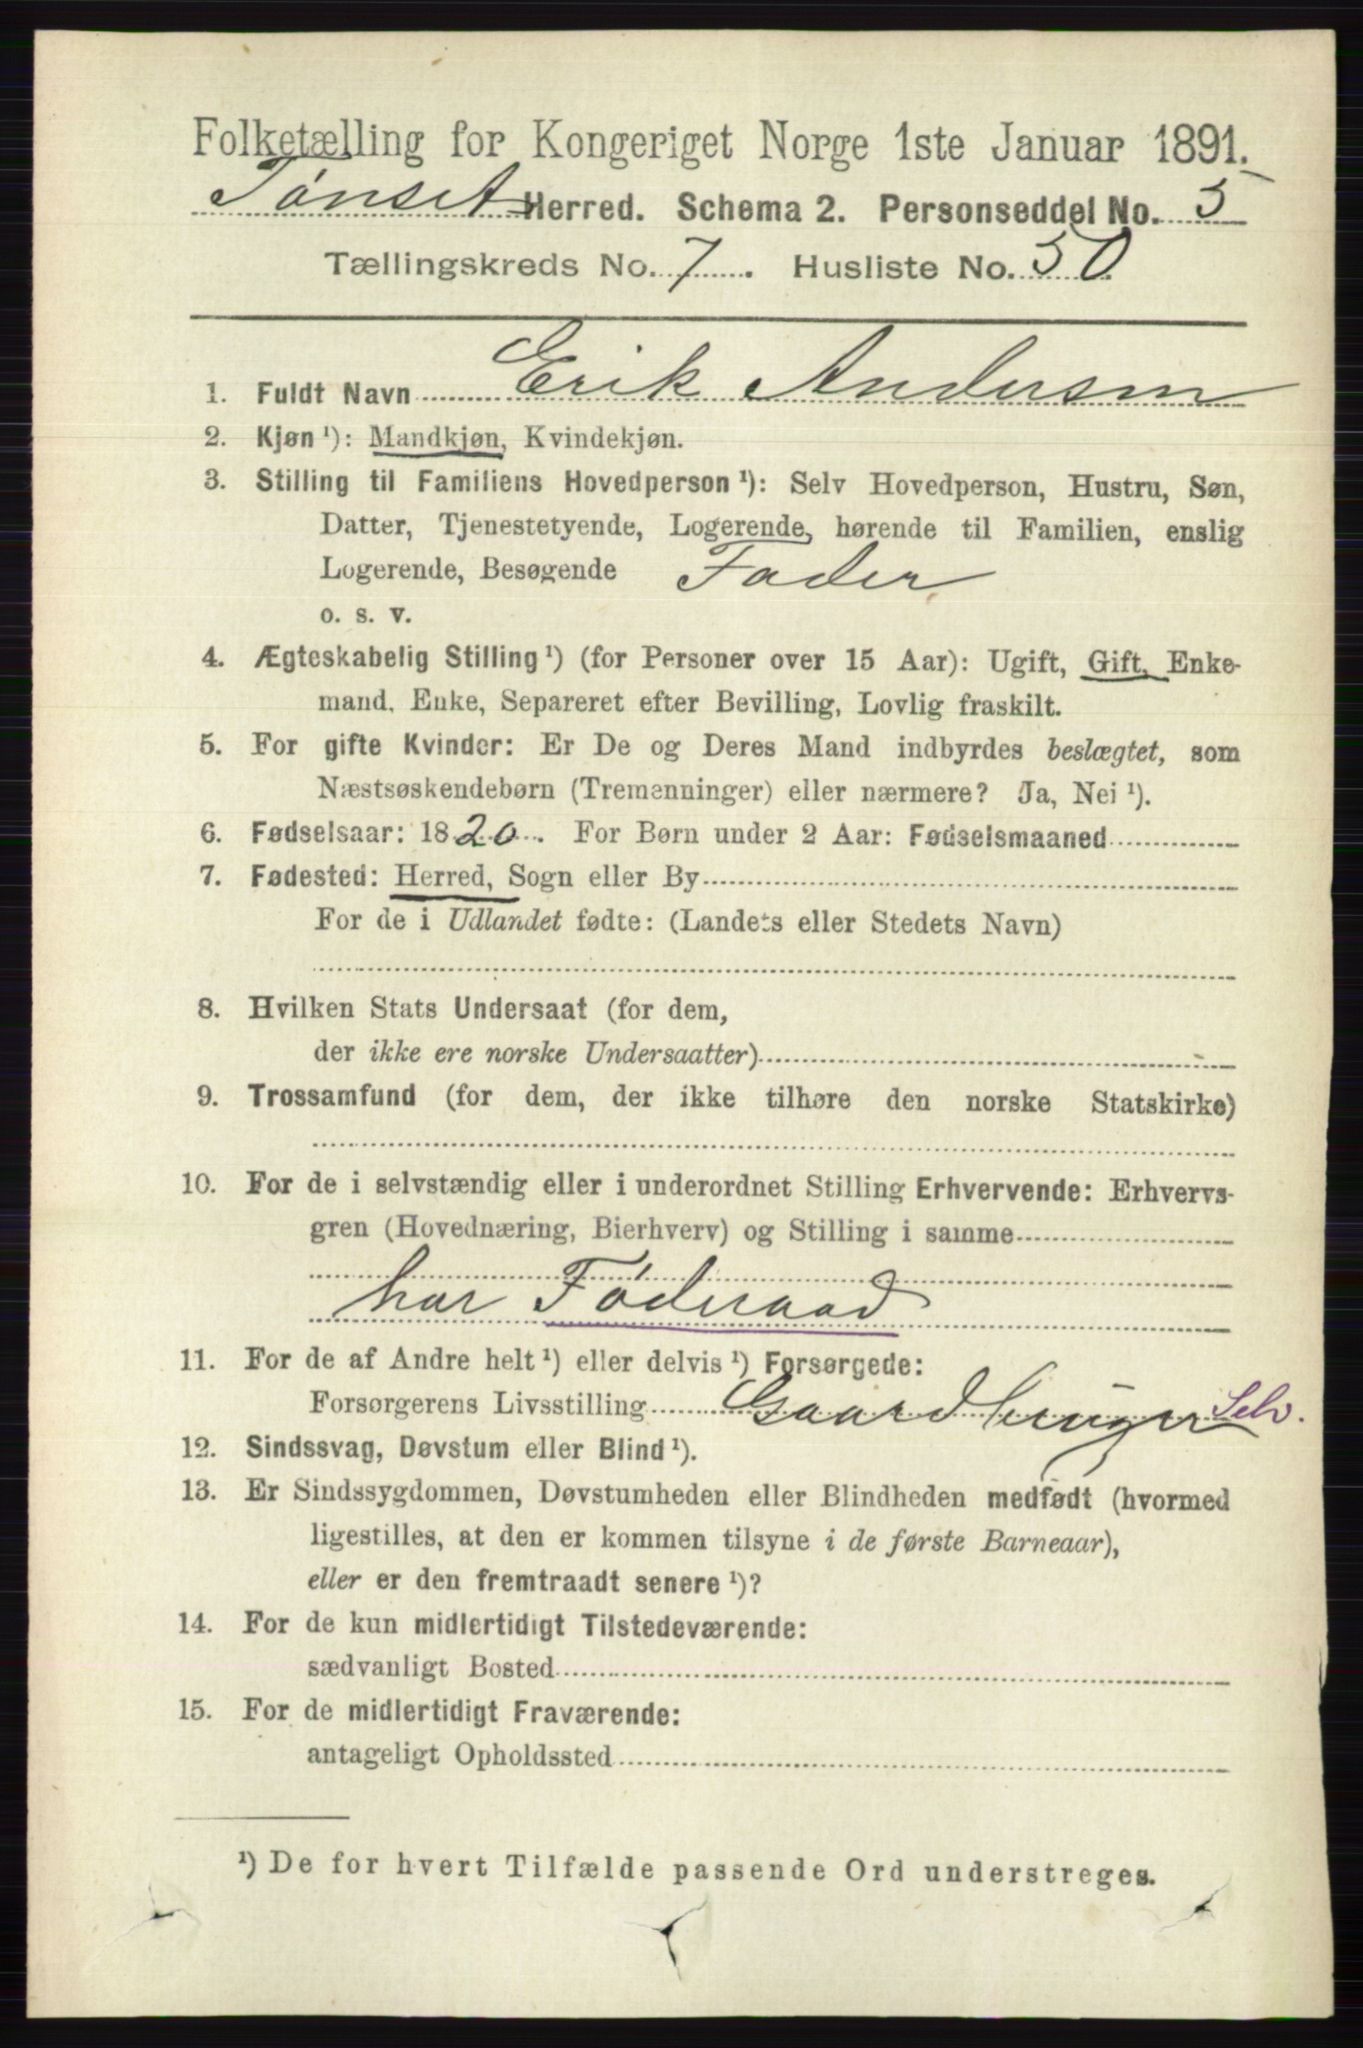 Folketælling for Kongeriget Norge 1ste Januar 1891.
Tønset Herred. Schema 2. Personseddel No. 5
Tællingskreds No. 7. Husliste No. 50
1. Fuldt Navn Erik Andersen
2. Kjøn ¹): Mandkjøn, Kvindekjøn.
3. Stilling til Familiens Hovedperson ¹): Selv Hovedperson, Hustru, Søn,
Datter, Tjenestetyende, Logerende, hørende til Familien, enslig
Logerende, Besøgende Fader
o. s. v.
4. Ægteskabelig Stilling ¹) (for Personer over 15 Aar): Ugift, Gift, Enke-
mand, Enke, Separeret efter Bevilling, Lovlig fraskilt.
5. For gifte Kvinder: Er De og Deres Mand indbyrdes beslægtet, som
Næstsøskendebørn (Tremenninger) eller nærmere? Ja, Nei ¹).
6. Fødselsaar: 1820. For Børn under 2 Aar: Fødselsmaaned
7. Fødested: Herred, Sogn eller By
For de i Udlandet fødte: (Landets eller Stedets Navn)
8. Hvilken Stats Undersaat (for dem,
der ikke ere norske Undersaatter)
9. Trossamfund (for dem, der ikke tilhøre den norske Statskirke)
10. For de i selvstændig eller i underordnet Stilling Erhvervende: Erhvervs-
gren (Hovednæring, Bierhverv) og Stilling i samme
har Føderaad
11. For de af Andre helt ¹) eller delvis ¹) Forsørgede:
Forsørgerens Livsstilling Gaardbruger Selv.
12. Sindssvag, Døvstum eller Blind ¹).
13. Er Sindssygdommen, Døvstumheden eller Blindheden medfødt (hvormed
ligestilles, at den er kommen tilsyne i de første Barneaar),
eller er den fremtraadt senere ¹)?
14. For de kun midlertidigt Tilstedeværende:
sædvanligt Bosted
15. For de midlertidigt Fraværende:
antageligt Opholdssted
¹) De for hvert Tilfælde passende Ord understreges.